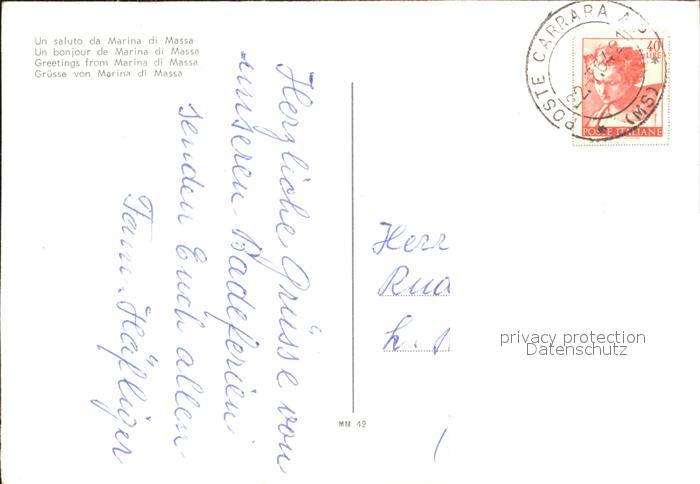 Un saluto da Marina di Massa
Un bonjour de Marina di Massa
Greetings from Marina di Massa
Grüsse von Marina di Massa
Herzliche Grüsse von
unseren Badeferien
senden Euch allen
Fam. Häfliger
MM 42
POSTE CARRARA
(MS)
40
LIRE
POSTE ITALIANE
Herr
privacy protection
Datenschutz